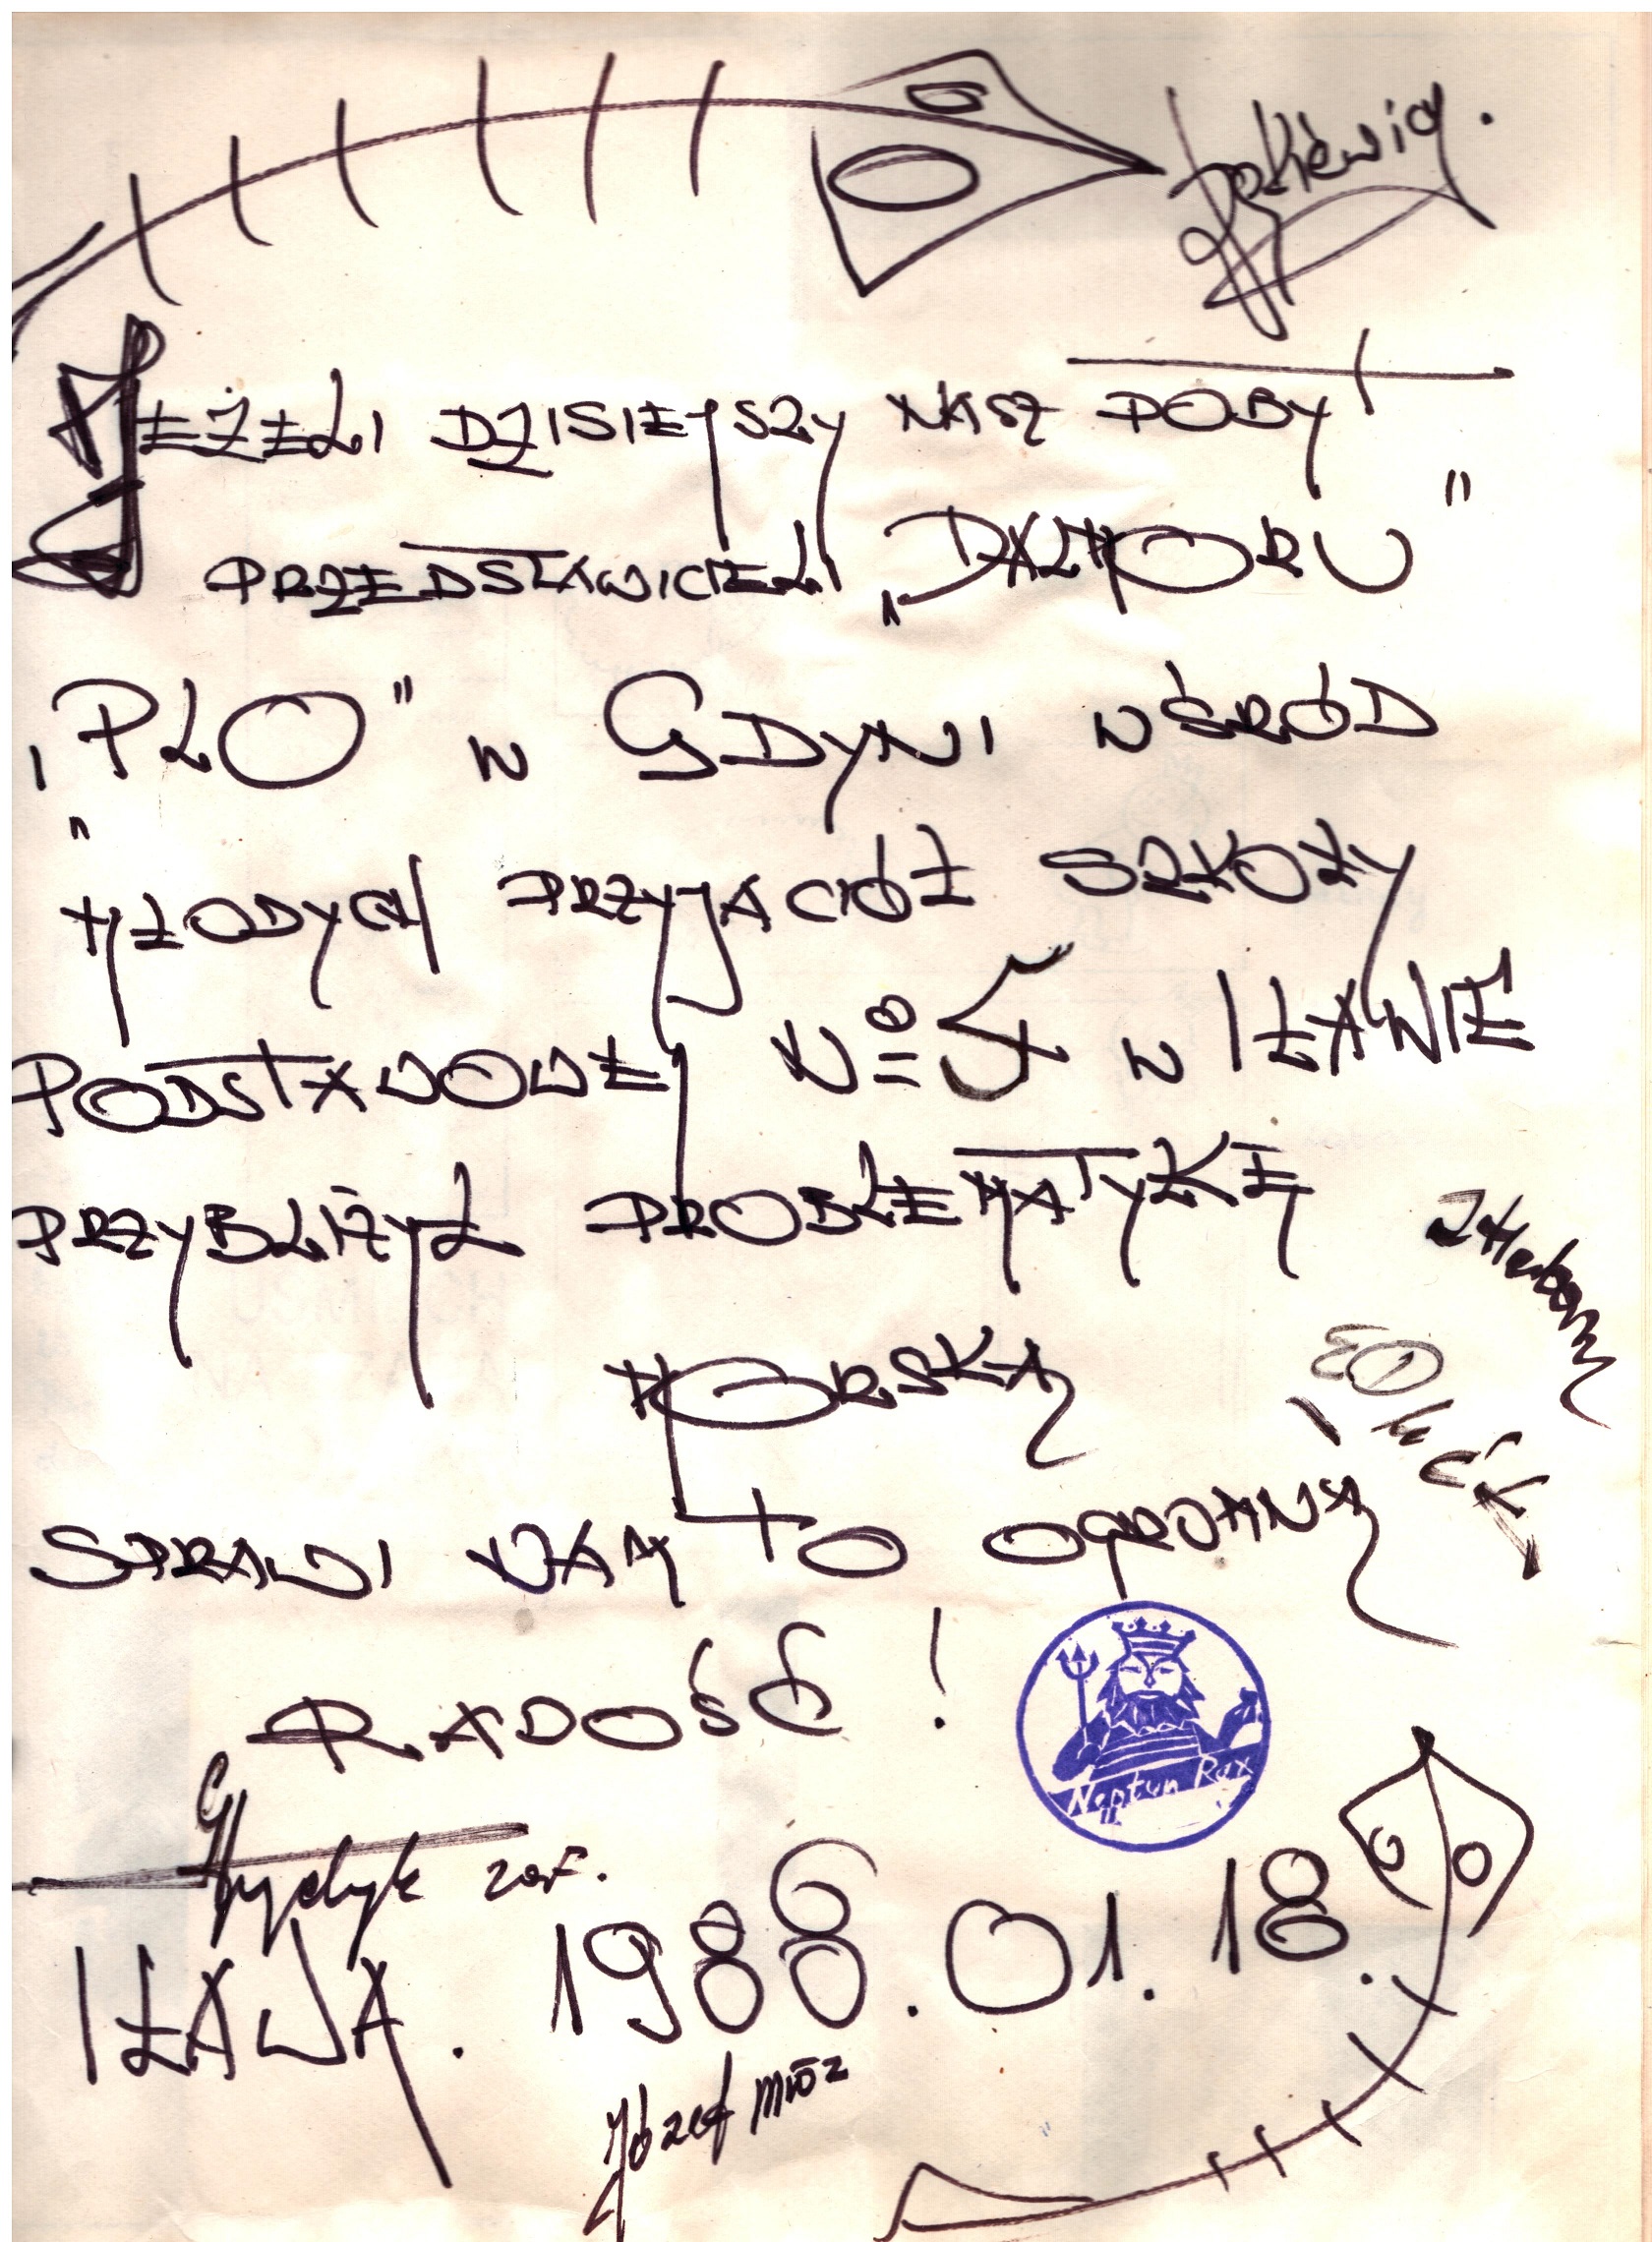 JEŻELI DZISIEJSZY NASZ POBYT
PRZEDSTAWICIELI „DALMORU”
„PLO” W GDYNI WŚRÓD
MŁODYCH PRZYJACIÓŁ SZKOŁY
PODSTAWOWEJ No 5 W IŁAWIE
PRZYBLIŻYŁ PROBLEMATYKĘ
MORSKĄ
SPRAWI NAM TO OGROMNĄ
RADOŚĆ !
Neptun Rex
IŁAWA. 1986.01.18.
Józef Mróz